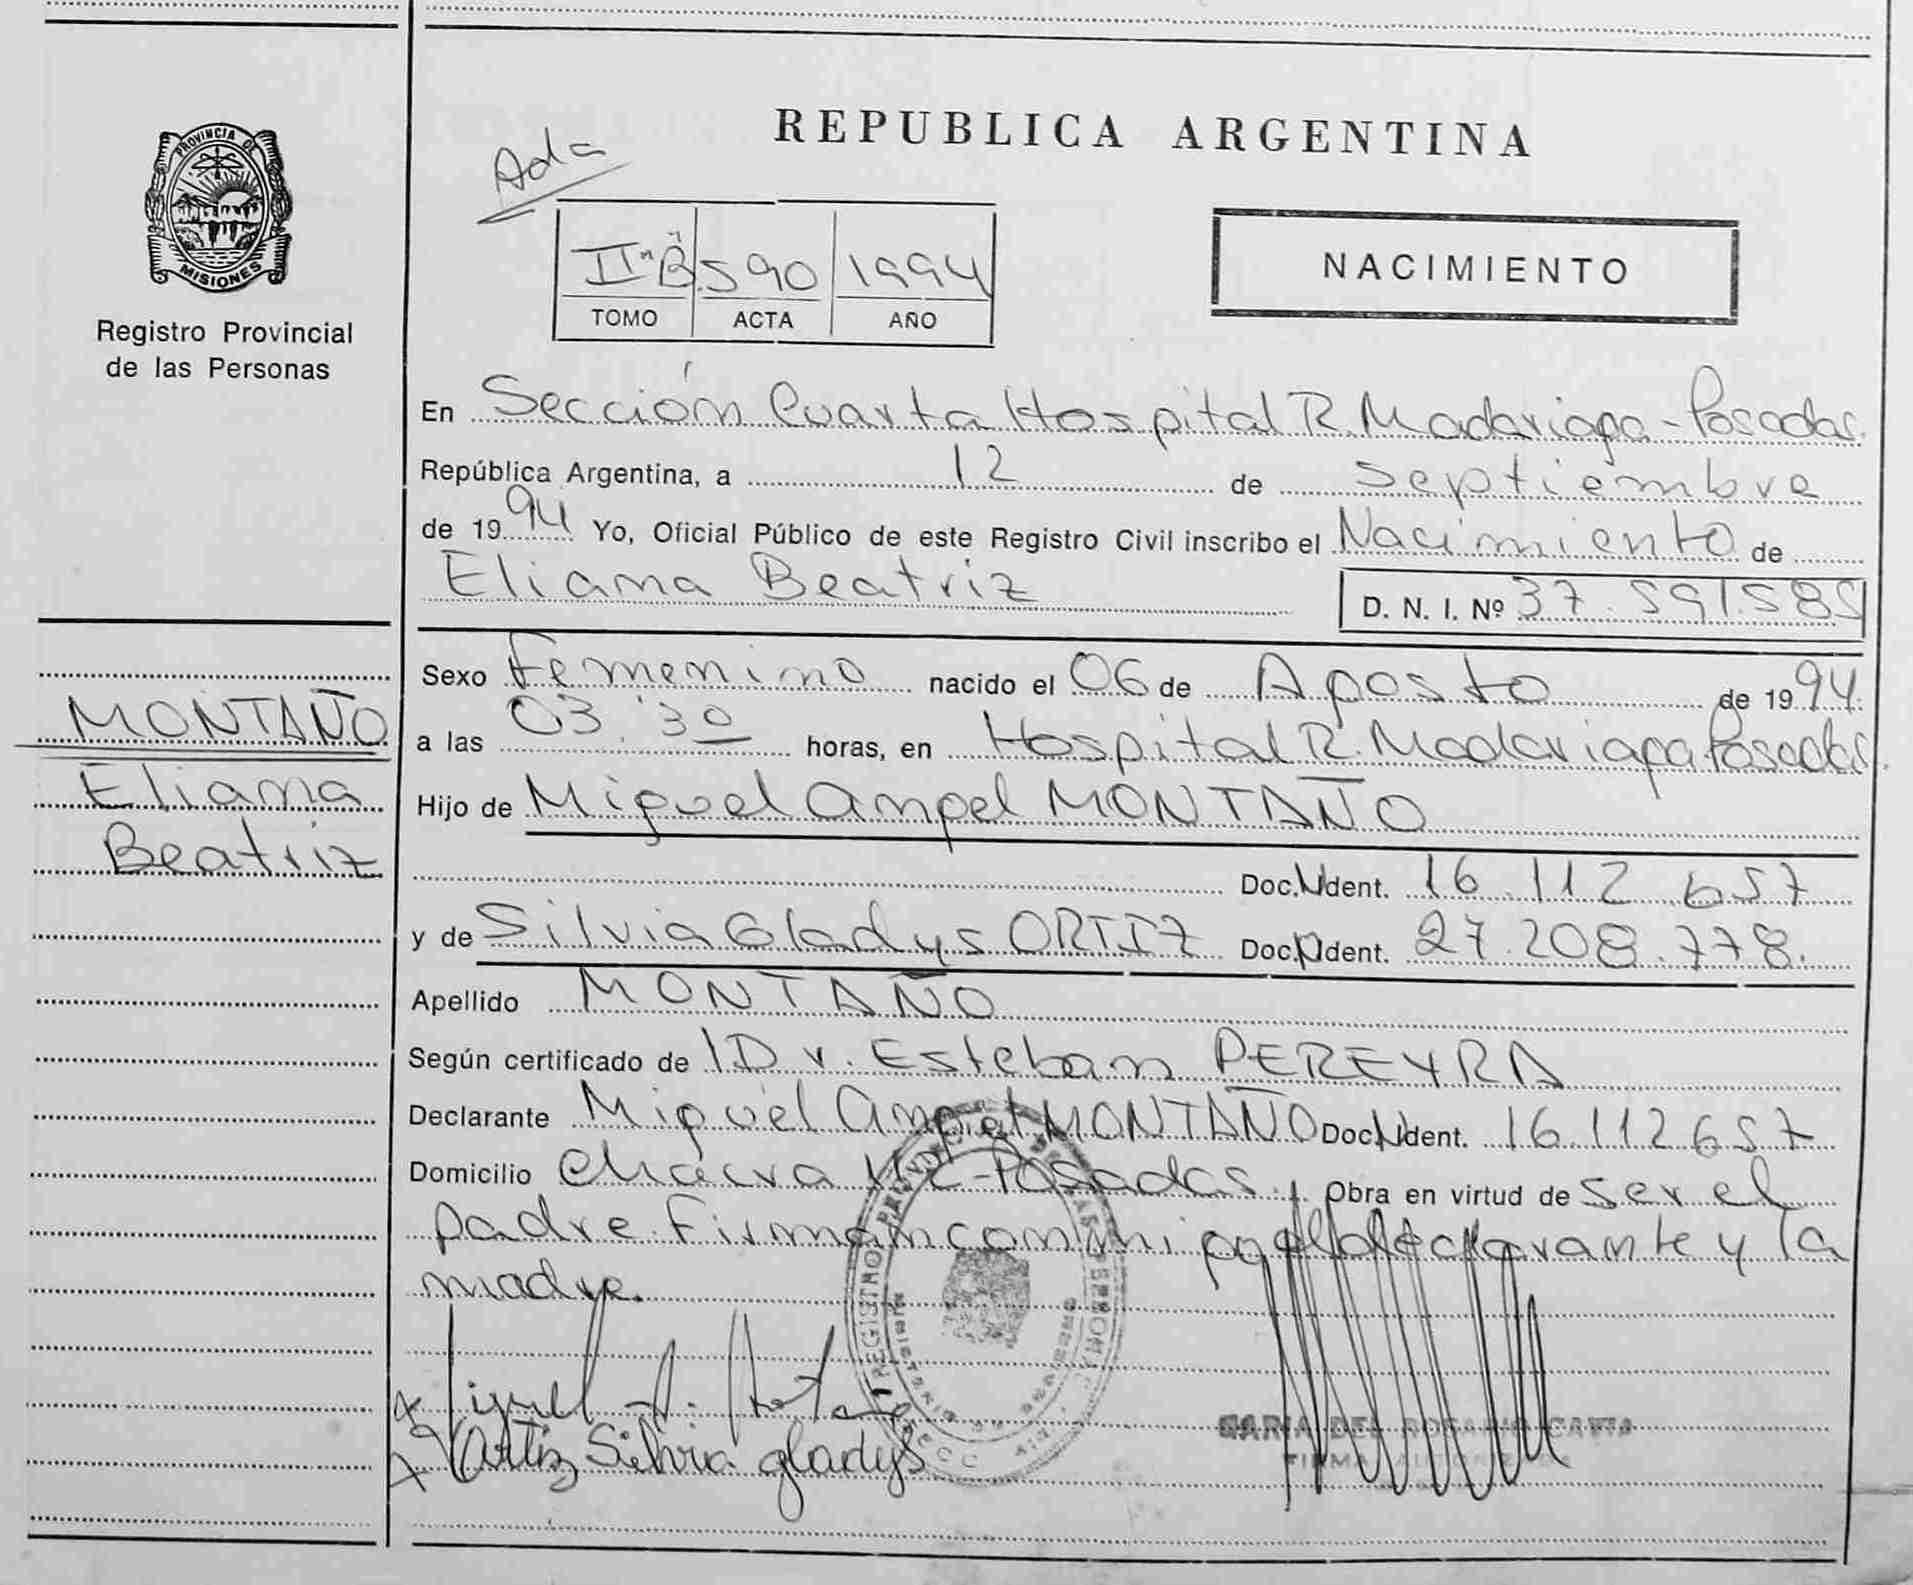 PROVINCIA DE
MISIONES
Registro Provincial
de las Personas
MONTAÑO
Eliana
Beatriz
REPUBLICA ARGENTINA
II "B" 590 1994
TOMO ACTA AÑO
NACIMIENTO
En Sección Cuarta Hospital R. Madariaga - Posadas.
República Argentina, a 12 de septiembre
de 1994 Yo, Oficial Público de este Registro Civil inscribo el Nacimiento de
Eliana Beatriz D. N. I. Nº 37.591.585
Sexo Femenino nacido el 06 de Agosto de 1994.
a las 03:30 horas, en Hospital R. Madariaga Posadas.
Hijo de Miguel Angel MONTAÑO
Doc. Ident. 16.112.657
y de Silvia Gladys ORTIZ Doc. Ident. 27.208.778.
Apellido MONTAÑO
Según certificado de Dr. Esteban PEREYRA
Declarante Miguel Angel MONTAÑO Doc. Ident. 16.112.657
Domicilio Chacra - Posadas. Obra en virtud de ser el
padre. Firman conmigo el declarante y la
madre.
Miguel A.
Ortiz Silvia gladys
MARIA DEL ROSARIO
FIRMA AUTORIZADA